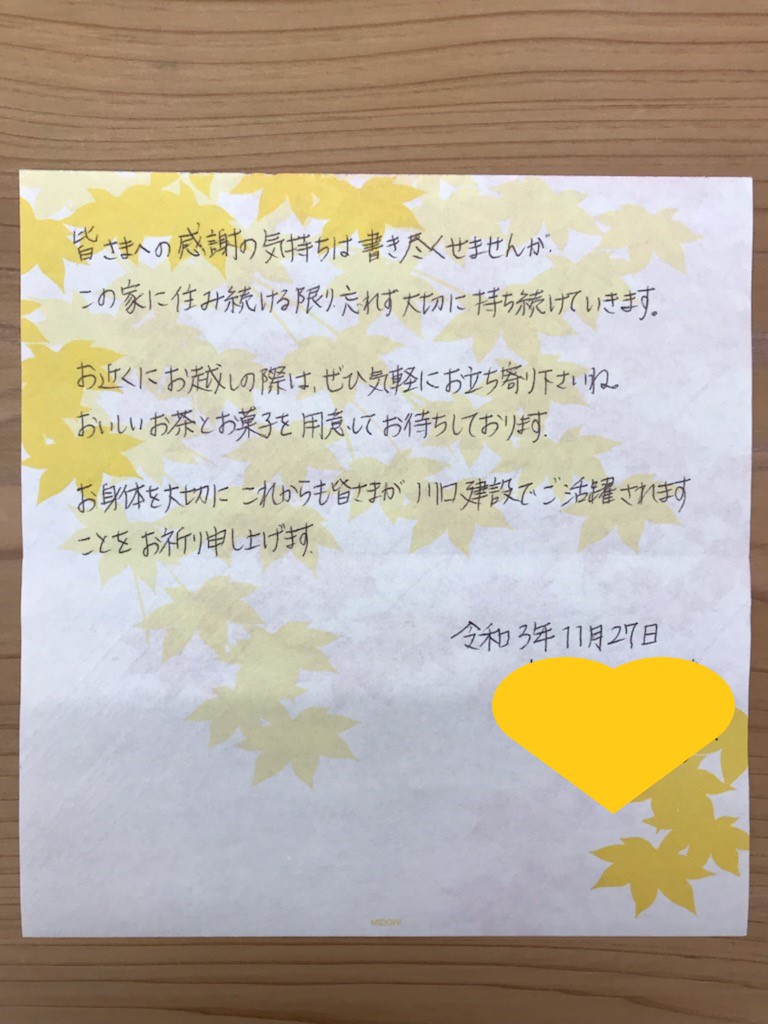 皆さまへの感謝の気持ちは書き尽くせませんが、
この家に住み続ける限り忘れず大切に持ち続けていきます。
お近くにお越しの際は、ぜひ気軽にお立ち寄り下さいね。
おいしいお茶とお菓子を用意してお待ちしております。
お身体を大切にこれからも皆さまが川口建設でご活躍されます
ことをお祈り申し上げます。
令和3年11月27日
MIDORI